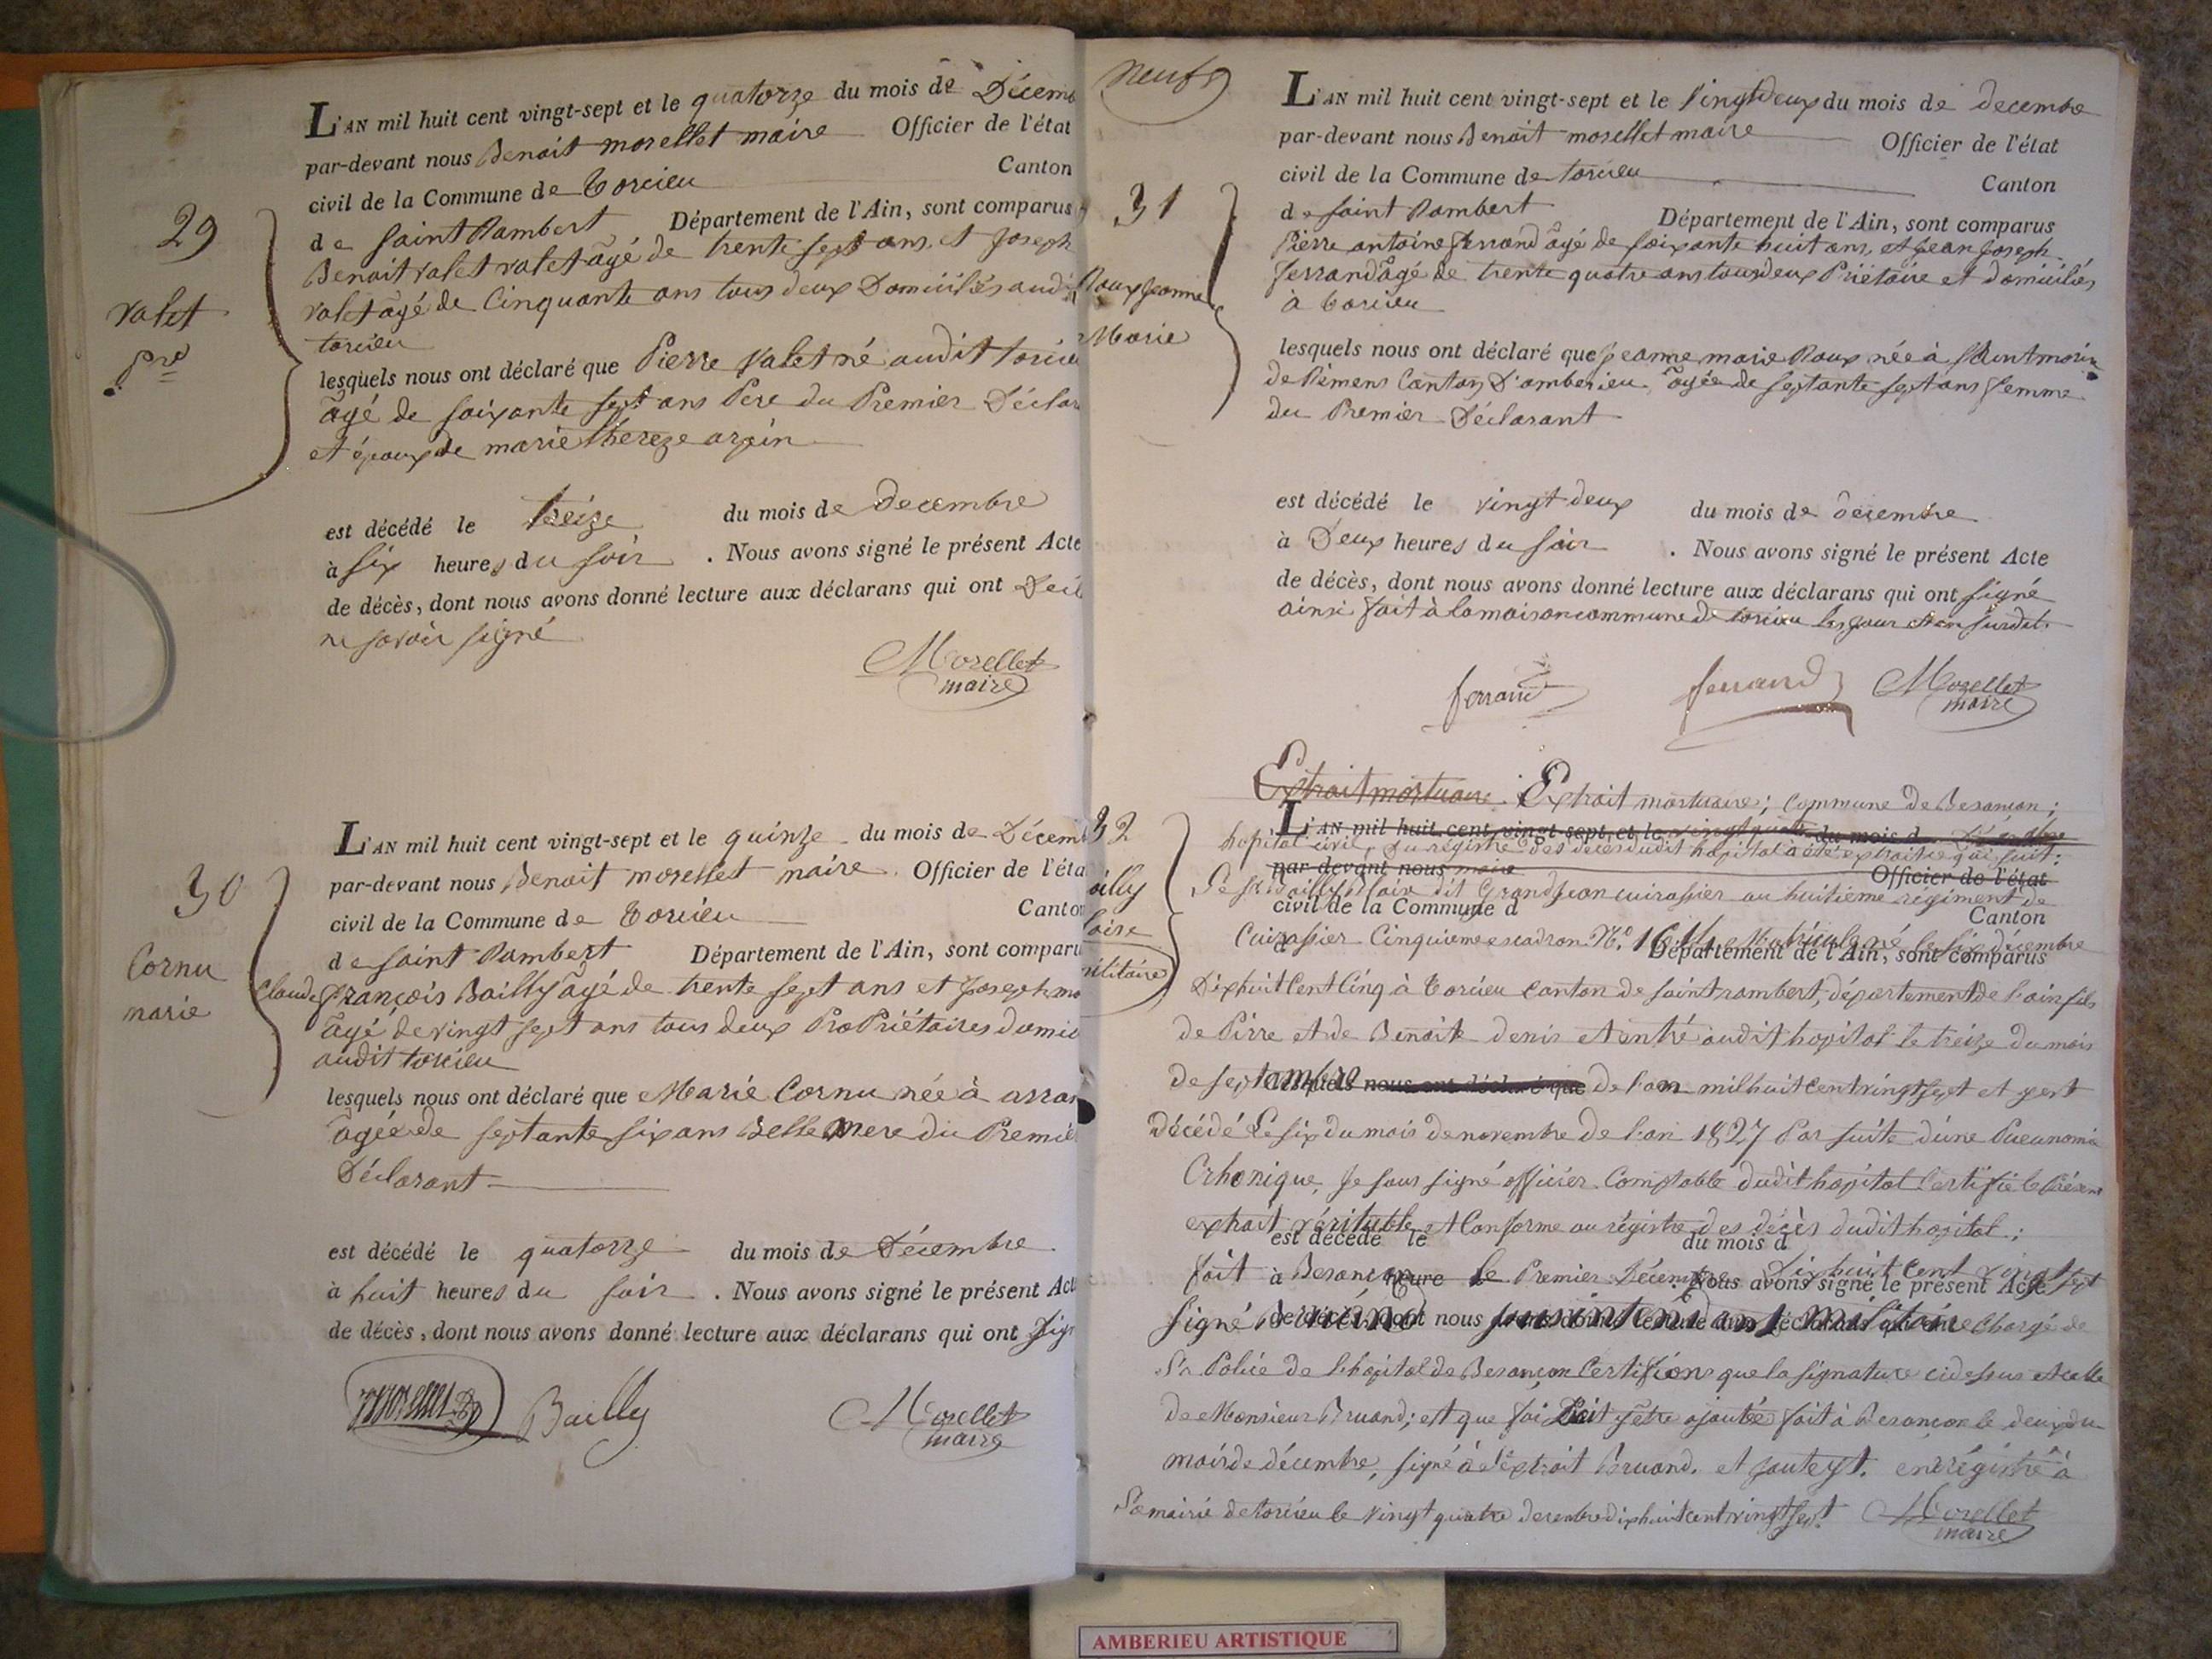 L'AN mil huit cent vingt-sept et le quatorze du mois de Décemb
par-devant nous Benoit morellet maire Officier de l'état
civil de la Commune de torcieu Canton
de saint Rambert Département de l'Ain, sont comparus
29
valet
pre
Benoit valet valet âgé de trente sept ans et joseph
valet âgé de Cinquante ans tous deux Domiciliés audi
torcieu
lesquels nous ont déclaré que Pierre valet né audit torcieu
âgé de soixante sept ans Pere du Premier Déclar
et époux de marie thereze arpin
est décédé le treize du mois de decembre
à six heures du soir . Nous avons signé le présent Acte
de décès, dont nous avons donné lecture aux déclarans qui ont
ne savoir signé
Morellet
maire
L'AN mil huit cent vingt-sept et le quinze du mois de Décem
par-devant nous Benoit morellet maire Officier de l'éta
civil de la Commune de torcieu Canton
de saint Rambert Département de l'Ain, sont comparu
30
Cornu
marie
Claude françois Bailly âgé de trente sept ans et joseph mo
âgé de vingt sept ans tous deux ProPriétaires domic
audit torcieu
lesquels nous ont déclaré que Marie Cornu née à arran
agée de septante six ans Belle Mere du Premier
Déclarant
est décédé le quatorze du mois de Décembre
à huit heures du soir . Nous avons signé le présent Act
de décès, dont nous avons donné lecture aux déclarans qui ont sign
Bailly
Morellet
maire
neuf 9
L'AN mil huit cent vingt-sept et le vingt deux du mois de decembre
par-devant nous Benoit morellet maire Officier de l'état
civil de la Commune de torcieu Canton
de saint Rambert Département de l'Ain, sont comparus
31
Roux jeanne
Marie
Pierre antoine ferrand âgé de soixante huit ans, et jean joseph
ferrand âgé de trente quatre ans tous deux Priétaire et domiciliés
à torcieu
lesquels nous ont déclaré que jeanne marie Roux née à
de Rémens Canton D'amberieu âgée de septante sept ans femme
du Premier Déclarant
est décédé le vingt deux du mois de decembre
à Deux heures du soir . Nous avons signé le présent Acte
de décès, dont nous avons donné lecture aux déclarans qui ont signé
ainsi fait à la maison commune de torcieu les jour et an susdit.
ferrand ferrand Morellet
maire
Extrait mortuaire. Extrait mortuaire; Commune de Besançon;
L'AN mil huit cent vingt-sept et le vingt quatre du mois d Décembre
hopital civil, Du régistre des décès dudit hopital a été extrait ce qui suit:
par-devant nous maire Officier de l'état
32
ailly
laire
militaire
Le Sr Bailly dit Grandjean cuirassier au huitieme régiment de
civil de la Commune d Canton
Cuirassier Cinquieme escadron N.o né le six décembre
d Département de l'Ain, sont comparus
Dixhuit Cent Cinq à torcieu canton de saint rambert, département de l'ain fils
de Pirre et de Benoite denis et entré audit hopital le treize du mois
de septembre lesquels nous ont déclaré que de l'an mil huit cent vingt sept et y est
décédé Le six du mois de novembre de l'an 1827 Par suite d'une Pneunomie
Crhonique, Je sous signé officier Comptable dudit hopital Certifie le Présent
extrait véritable et Conforme au régistre des décès dudit hopital;
est décédé le du mois d
fait à Besançon heure le Premier Décembre Dixhuit Cent vingt sept
Nous avons signé le présent Acte
Signé Bruand nous sousintendant militaire Chargé de
de décès, dont nous avons donné lecture aux déclarans qui ont
La Police de l'hopital de Besançon Certifions que la signature cidessus est celle
de Monsieur Bruand; et que foi Doit y être ajoutée fait à Besançon le deux du
mois de décembre, signé à l'extrait Bruand. et enrégistré à
La mairie de torcieu le vingt quatre decembre dixhuit cent vingt sept. Morellet
maire
AMBERIEU ARTISTIQUE